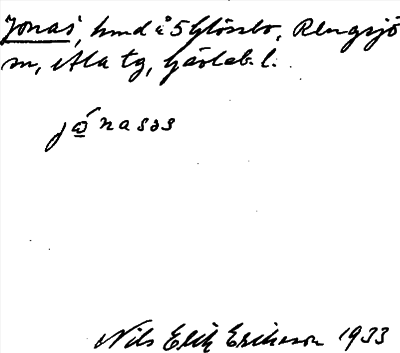 Jonas, hmd å 5 Glössbo, Rengsjö
sn, Ala tg, Gävleb. l.
jónasəs
Nils Erik Ericsson 1933